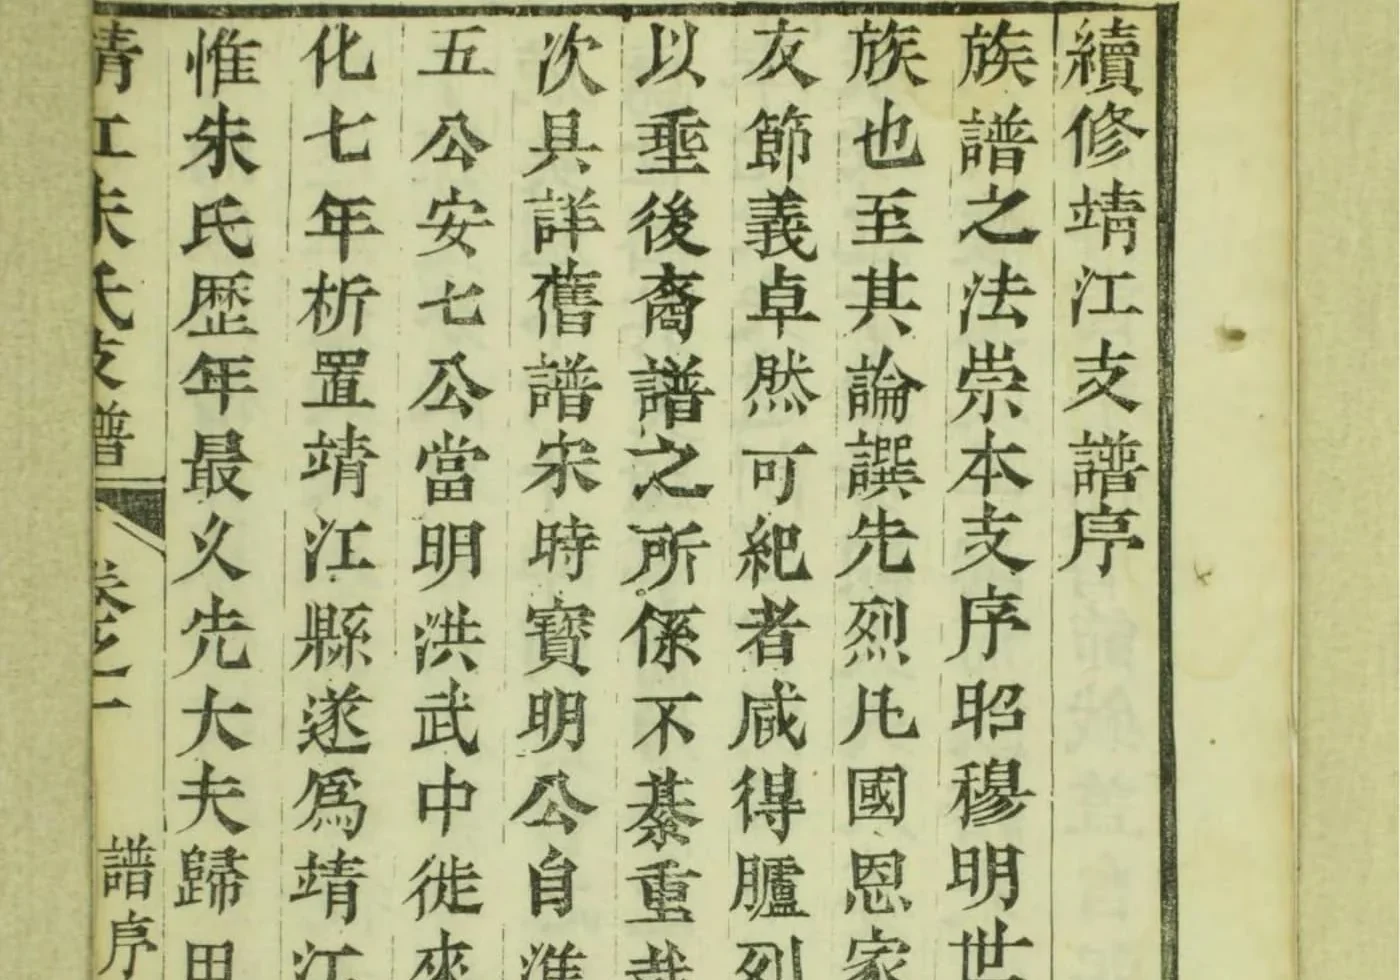 續修靖江支譜序
族譜之法崇本支序昭穆明世
族也至其論譔先烈凡國恩家
友節義卓然可紀者咸得臚列
以垂後裔譜之所係不綦重哉
次具詳舊譜宋時寳明公自淮
五公安七公當明洪武中徙來
化七年析置靖江縣遂爲靖江
惟朱氏歷年最久先大夫歸田
靖江朱氏支譜 卷之一 譜序